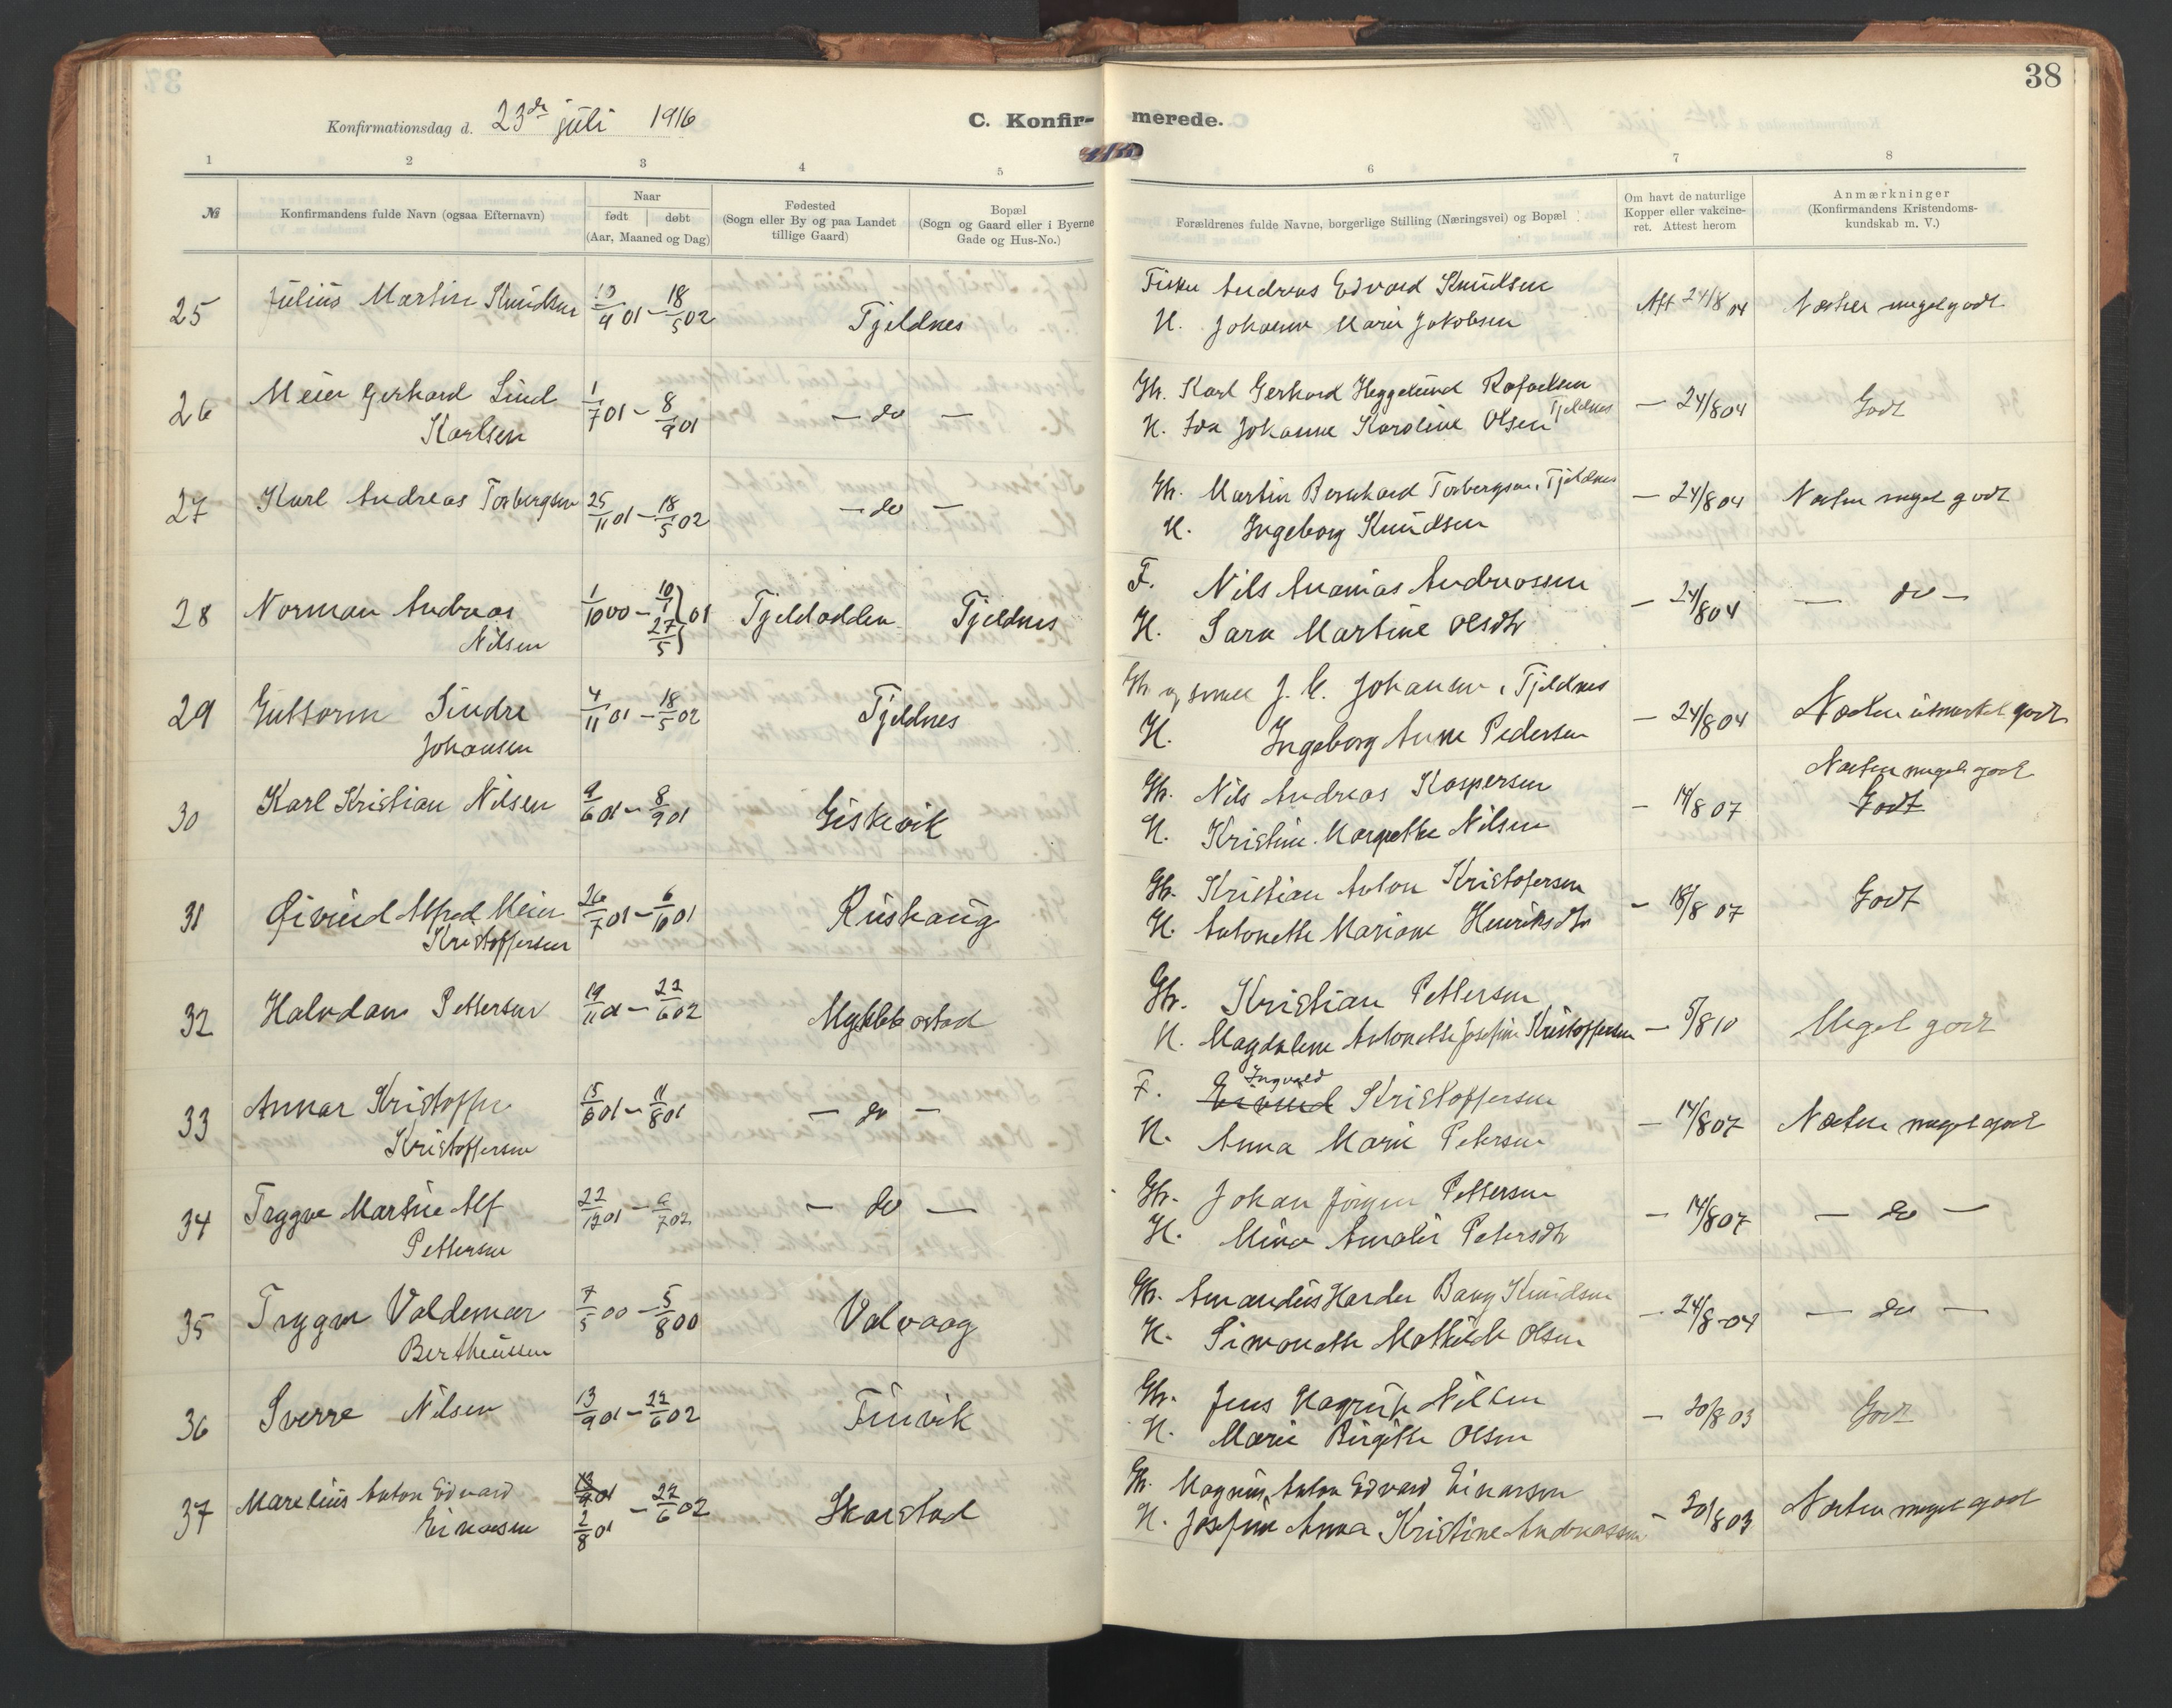 38
Konfirmationsdag d. 23de juli 1916
C. Konfirmerede.
1 2 3 4 5 6 7 8
№ Konfirmandens fulde Navn (ogsaa Efternavn) Naar født døbt (Aar, Maaned og Dag) Fødested (Sogn eller By og paa Landet tillige Gaard) Bopæl (Sogn og Gaard eller i Byerne Gade og Hus-No.) Forældrenes fulde Navne, borgerlige Stilling (Næringsvei) og Bopæl Om havt de naturlige Kopper eller vakcineret. Attest herom Anmærkninger (Konfirmandens Kristendomskundskab m. V.)
25 Julius Martin Knudsen 19/9 01 – 18/5 02 Tjeldnes Fisker Andreas Edvard Knudsen Att 24/8 04 Næsten meget godt
H. Johanna Marie Jakobsen
26 Meier Gerhard Lind 1/7 01 – 8/9 01 — do — Gbr. Karl Gerhard Heggelund Rafaelsen — 24/8 04 Godt
Karlsen H. Ida Johanne Karoline Olsen Tjeldnes
27 Karl Andreas Torbergsen 25/11 01 – 18/5 02 — do — Gbr. Martin Bernhard Torbergsen, Tjeldnes — 24/8 04 Næsten meget godt
H. Ingeborg Knudsen
28 Norman Andreas 1/10 00 – 10/1 27/5 } 01 Tjeldodden Tjeldnes F. Nils Ananias Andreassen — 24/8 04 — do —
Nilsen H. Sara Martine Olsdtr
29 Guttorm Sindre 4/11 01 – 18/5 02 Tjeldnes Gbr og smed J. C. Johansen, Tjeldnes — 24/8 04 Næsten utmerket godt
Johansen H. Ingeborg Anne Pedersen
30 Karl Kristian Nilsen 9/6 01 – 8/9 01 Giskevik Gbr. Nils Andreas Kaspersen — 14/8 07 Næsten meget godt
H. Kristine Margrethe Nilsen Godt
31 Øivind Alfred Meier 26/7 01 – 6/10 01 Rushaug Gbr. Kristian Anton Kristofersen — 18/8 07 Godt
Kristoffersen H. Antonette Mariane Henriksdtr
32 Halvdan Pettersen 19/11 01 – 22/6 02 Myklebostad Gbr. Kristian Pettersen — 5/8 10 Meget godt
H. Magdalene Antonette Josefine Kristoffersen
33 Annar Kristoffer 15/6 01 – 11/8 01 — do — F. Eivind Ingvald Kristoffersen — 14/8 07 Næsten meget godt
Kristoffersen H. Anna Marie Petersen
34 Trygve Martin Alf 22/12 01 – 6/7 02 — do — Gbr. Johan Jørgen Pettersen — 14/8 07 — do —
Pettersen H. Mina Amalie Petersdtr
35 Trygve Valdemar 7/5 00 – 5/8 00 Valvaag Gbr. Amandus Harder Bang Knudsen — 24/8 04 — do —
Bertheussen H. Simonette Mathilde Olsen
36 Sverre Nilsen 13/9 01 – 22/6 02 Finvik Gbr. Jens Hagrup Nilsen — 20/8 03 Godt
H. Marie Birgitte Olsen
37 Marelius Anton Edvard 13/9 01 2/8 01 – 22/6 02 Skarstad Gbr. Magnus Anton Edvard Einarsen — 20/8 03 Næsten meget godt
Einarsen H. Josefine Anna Kristine Andreassen